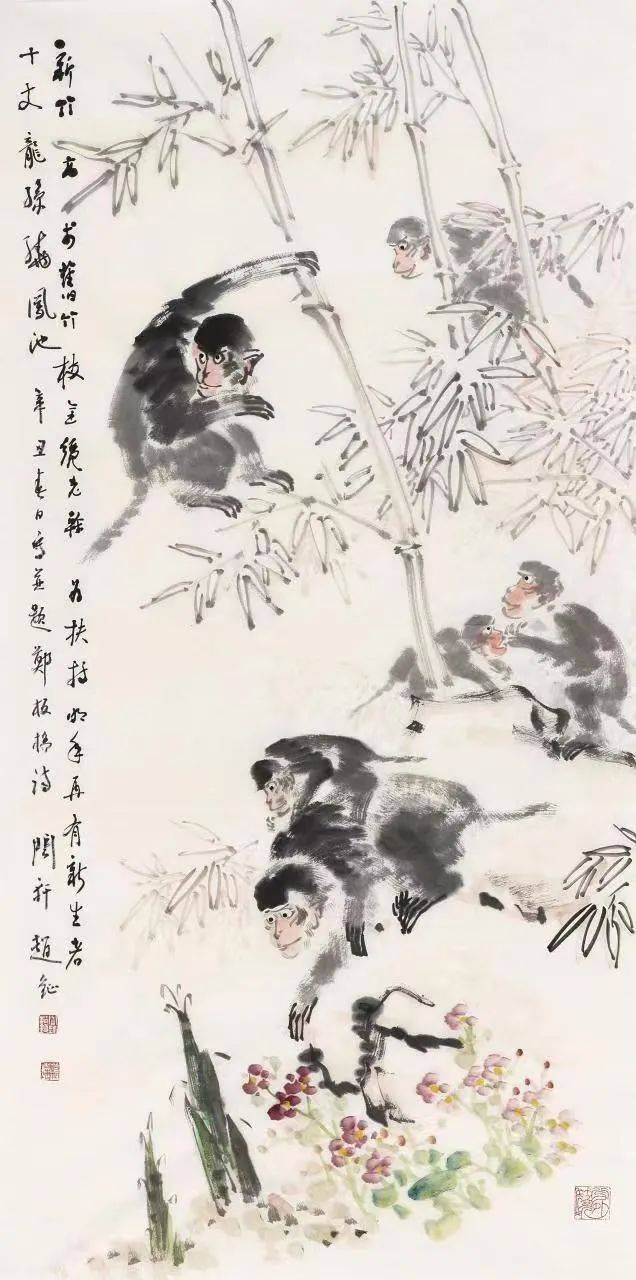 新竹高於舊竹枝全憑老幹为扶持明年再有新生者
十丈龍孫繞鳳池 辛丑春日寫並題鄭板橋詩 軒趙